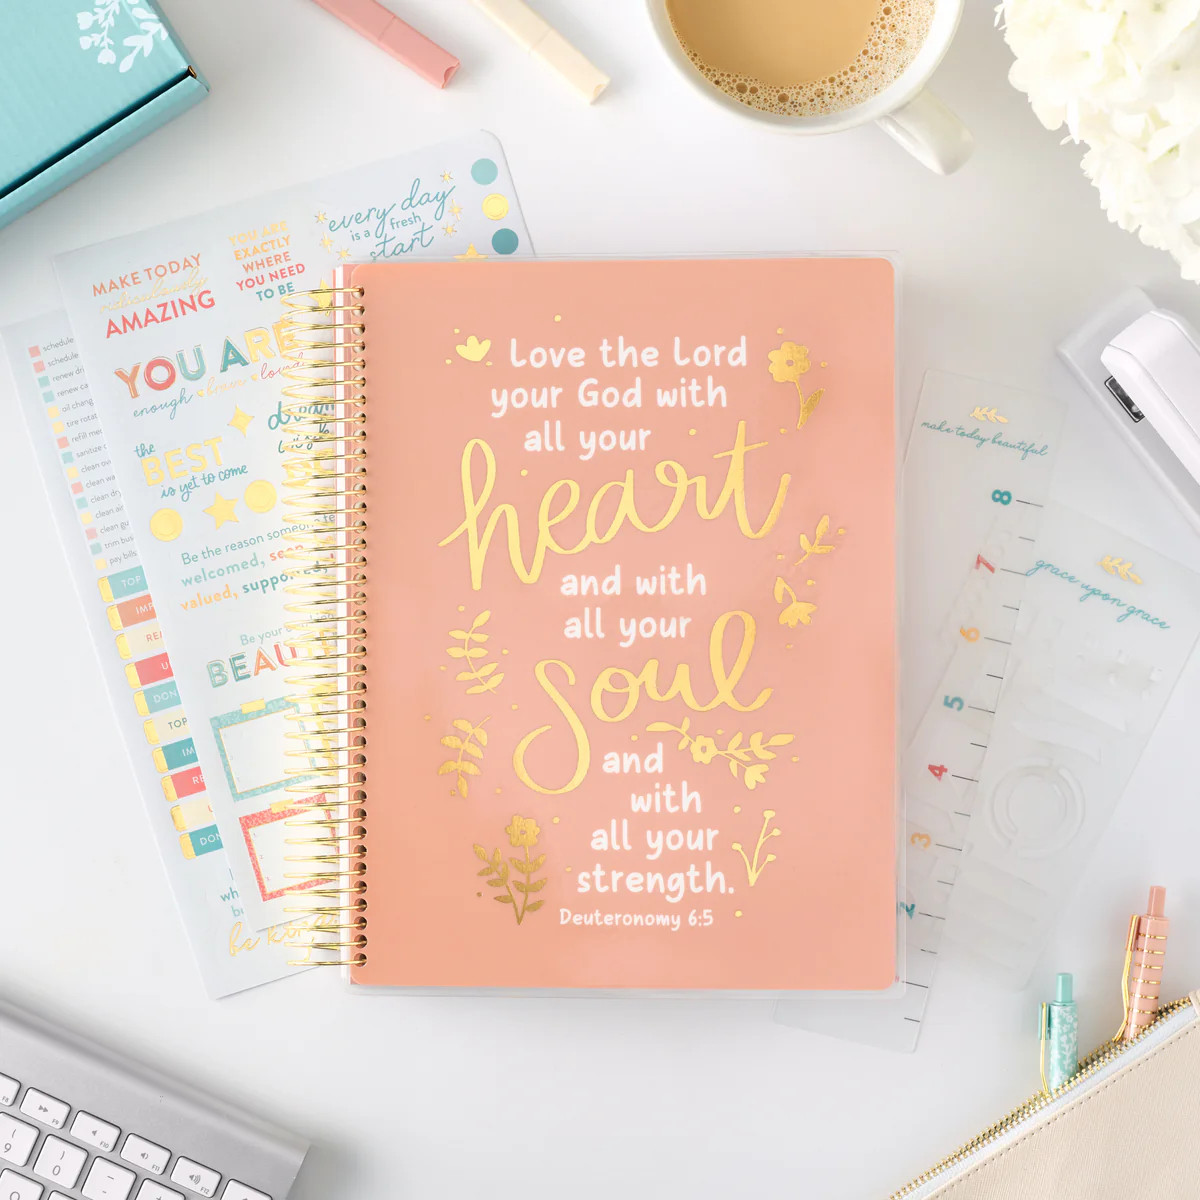 every day
is a fresh
start
MAKE TODAY
ridiculously
AMAZING
YOU ARE
EXACTLY
WHERE
YOU NEED
TO BE
YOU ARE
enough
loved
the
BEST
is yet to come
dream
Be the reason someone
welcomed, seen
valued, supported,
Be your
BEAU
be kind
schedule
schedule
renew
renew
oil chang
tire rotat
refill
sanitize
clean
clean
clean
clean
clean
trim
pay bills
TOP
DON
TOP
IM
DON
Love the Lord
your God with
all your
heart
and with
all your
soul
and
with
all your
strength.
Deuteronomy 6:5
make today beautiful
8
7
6
5
4
3
2
grace upon grace
F10
F11
F12
9
0